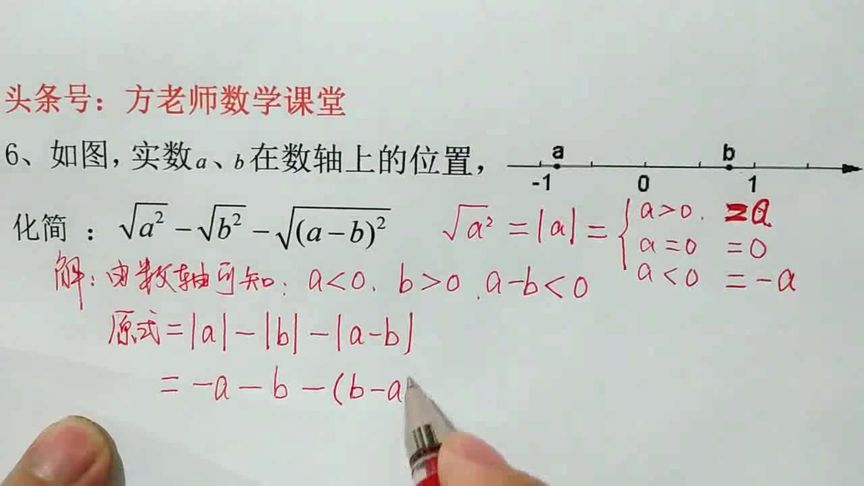 头条号：方老师数学课堂
6、如图，实数a、b在数轴上的位置，
a b
-1 0 1
化简：√a² - √b² - √(a-b)²
√a² = |a| = { a>0. =a
a=0 =0
a<0 =-a
解：由数轴可知：a<0. b>0 .a-b<0
原式=|a|-|b|-|a-b|
= -a-b-(b-a